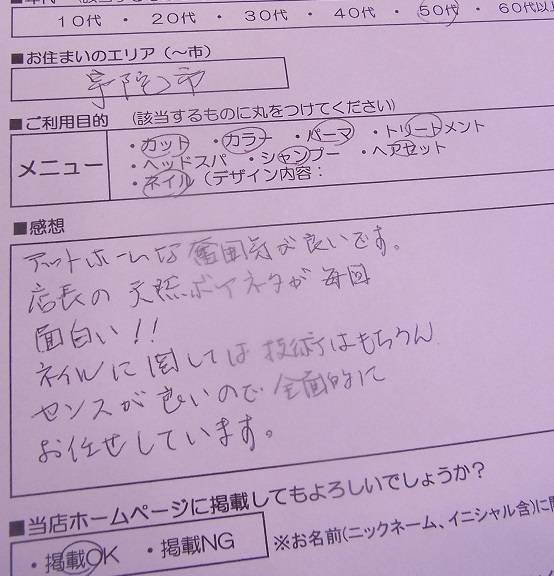 10代 ・ 20代 ・ 30代 ・ 40代 ・ 50代 ・ 60代以
■お住まいのエリア(～市)
宇陀市
■ご利用目的 (該当するものに丸をつけてください)
メニュー
・カット ・カラー ・パーマ ・トリートメント
・ヘッドスパ ・シャンプー ・ヘアセット
・ネイル(デザイン内容:
■感想
アットホームな雰囲気が良いです。
店長の天然ボケネタが毎回
面白い!!
ネイルに関しては技術はもちろん
センスが良いので全面的に
お任せしています。
■当店ホームページに掲載してもよろしいでしょうか?
・掲載OK ・掲載NG ※お名前(ニックネーム、イニシャル含)に